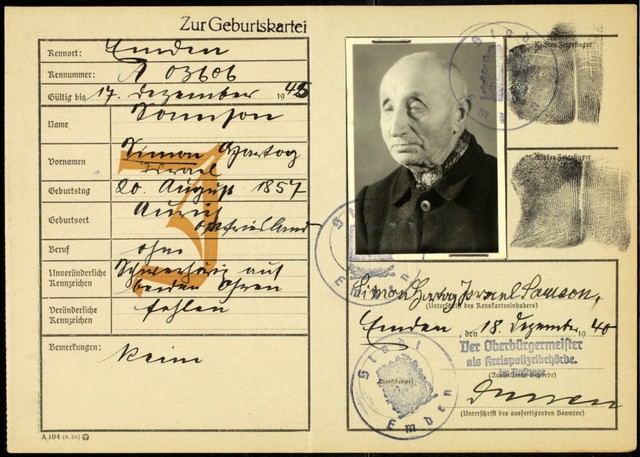 Zur Geburtskartei
Kennort: Emden
Kennummer: A 03606
Gültig bis 17. Dezember 1945
Name Samson
Vornamen Simon Hartog
Israel
Geburtstag 20. August 1857
Geburtsort Aurich
Ostfriesland
Beruf ohne
Unveränderliche Kennzeichen Schwerhörig auf
beiden Ohren
Veränderliche Kennzeichen fehlen
Bemerkungen: keine
J
A 104 (8. 38)
Rechter Zeigefinger
Linker Zeigefinger
Stadt Emden
Stadt Emden
Simon Hartog Israel Samson,
(Unterschrift des Kennkarteninhabers)
Emden, den 18. Dezember 1940
Der Oberbürgermeister
als Kreispolizeibehörde.
Im Auftrage
(Ausstellende Behörde)
Dienststempel
Stadt Emden
(Unterschrift des ausfertigenden Beamten)